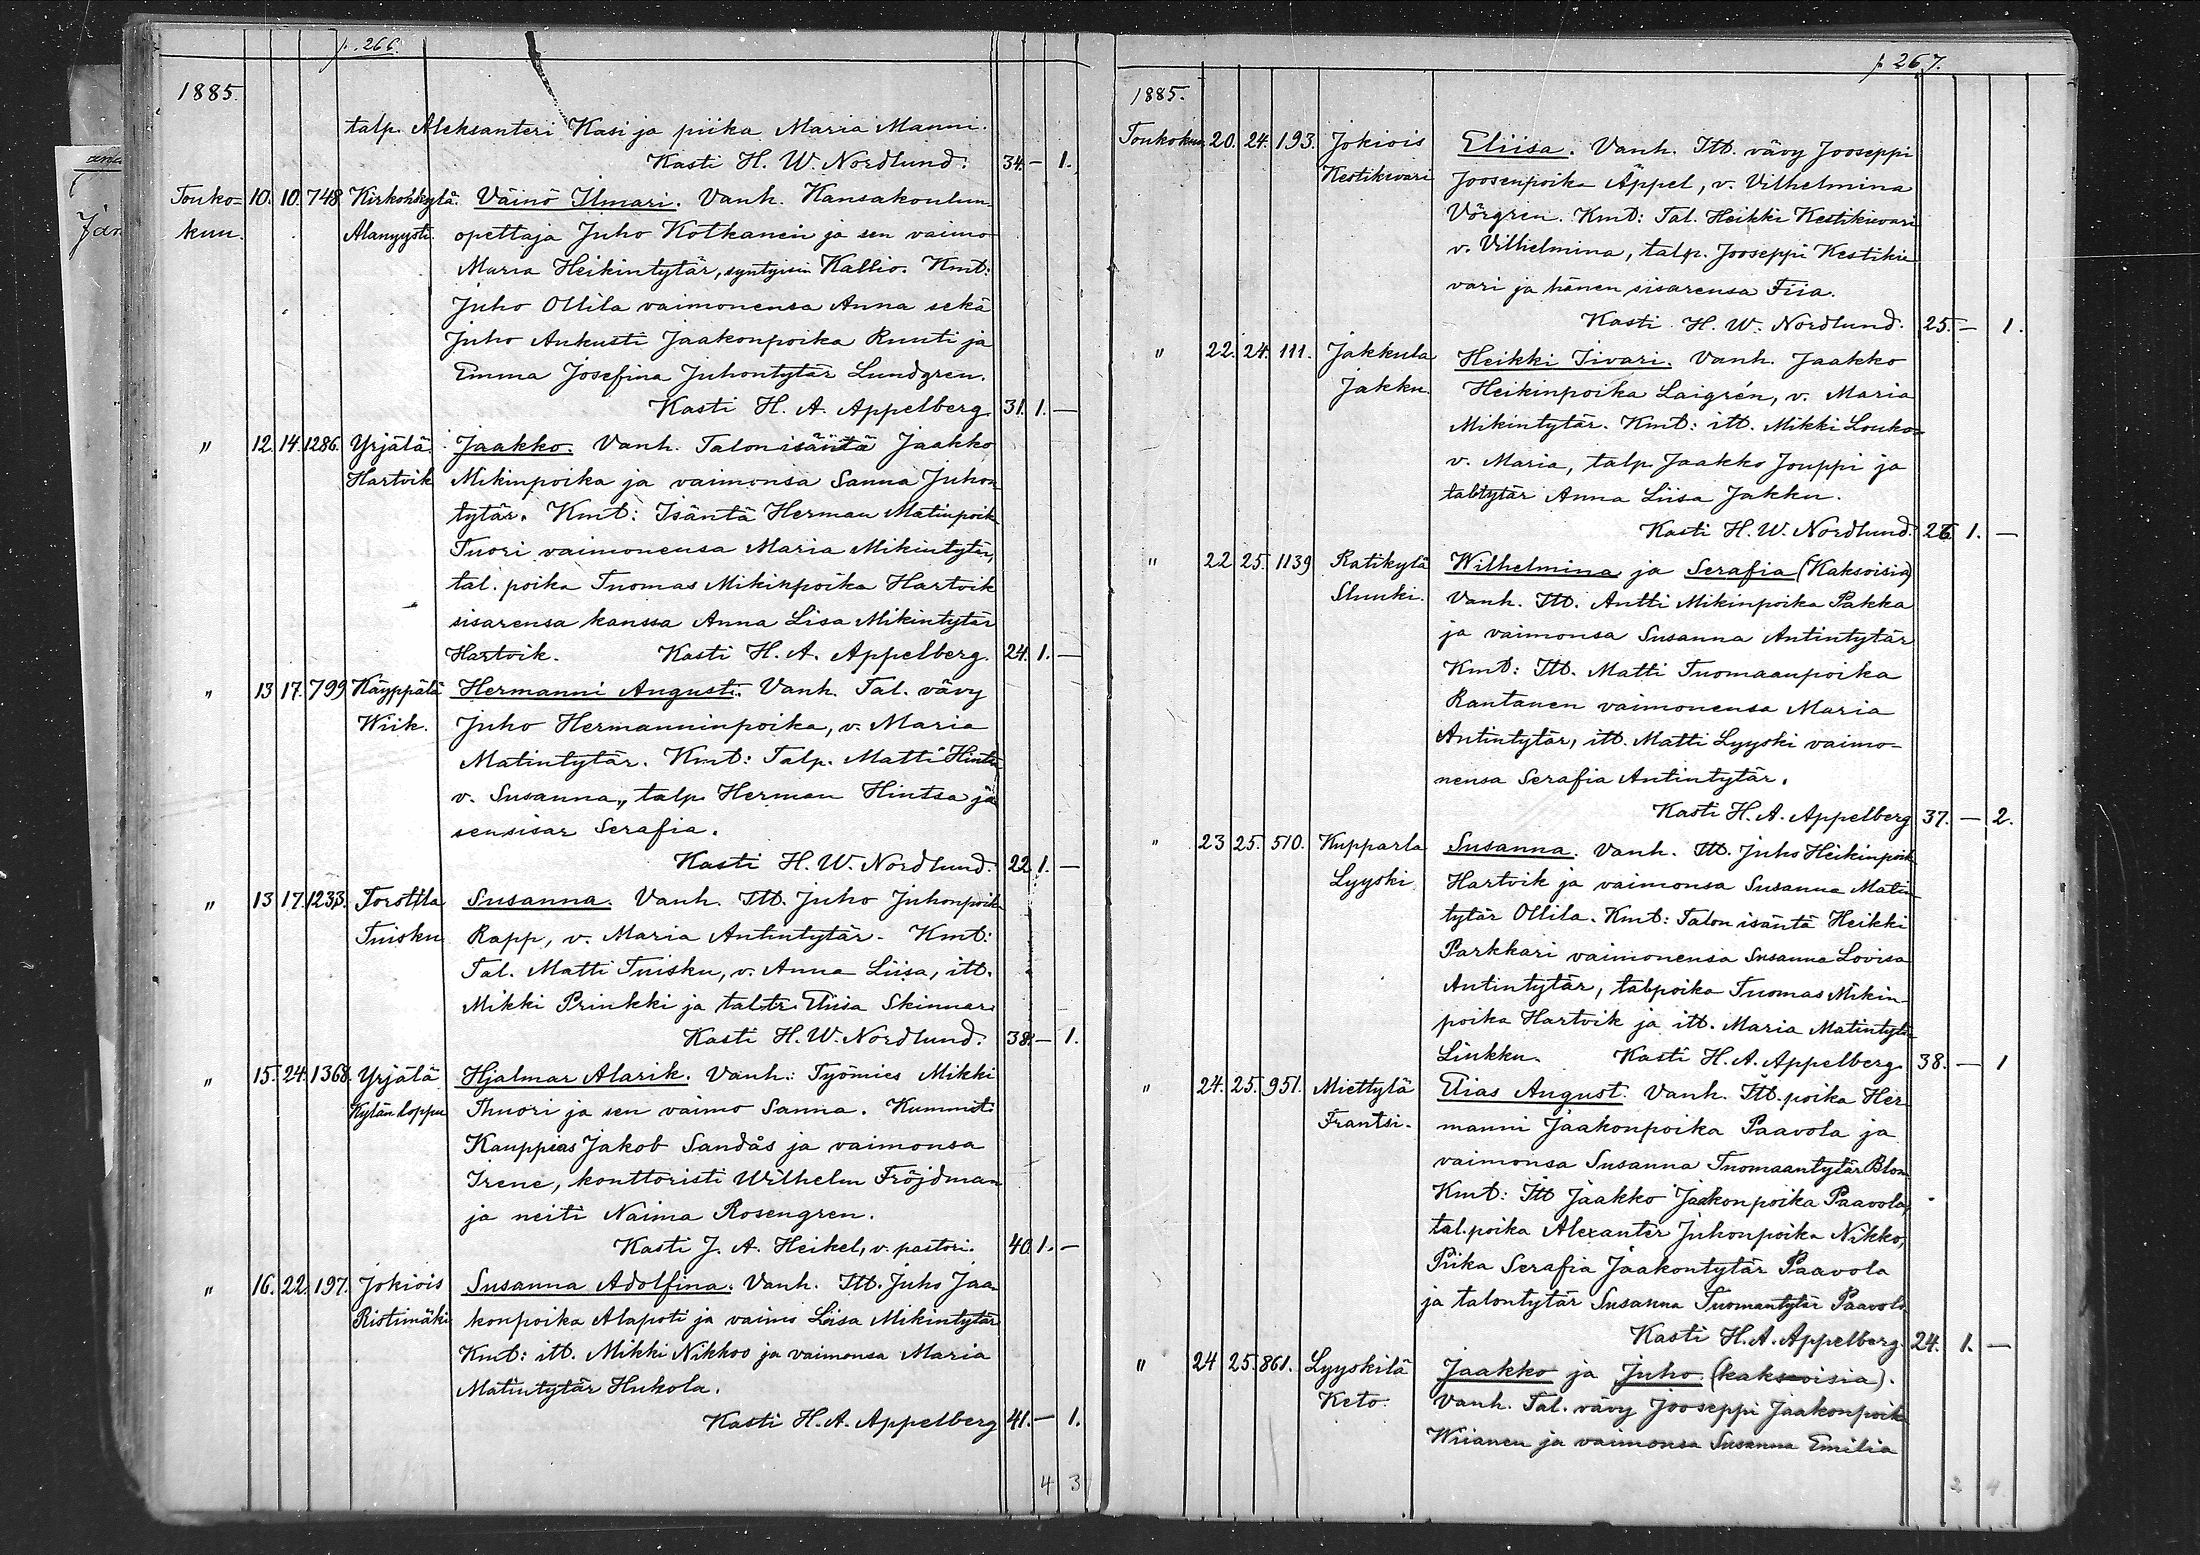 p. 266.
1885.
talp. Aleksanteri Kasi ja piika Maria Manni.
Kasti H. W. Nordlund. 34. — 1.
Touko- 10. 10. 748 Kirkonkylä Väinö Ilmari. Vanh. Kansakoulun
kuu. Alanyysti opettaja Juho Kotkanen ja sen vaimo
Maria Heikintytär, syntyisin Kallio. Kmt:
Juho Ollila vaimonensa Anna sekä
Juho Aukusti Jaakonpoika Ruuti ja
Emma Josefina Juhontytär Lundgren.
Kasti H. A. Appelberg. 31. 1. —
" 12. 14. 1286. Yrjälä Jaakko. Vanh. Talon isäntä Jaakko
Hartvik Mikinpoika ja vaimonsa Sanna Juhon
tytär. Kmt: Isäntä Herman Matinpoik
Tuori vaimonensa Maria Mikintytär,
tal. poika Tuomas Mikinpoika Hartvik
sisarensa kanssa Anna Lisa Mikintytär
Hartvik. Kasti H. A. Appelberg. 24. 1. —
" 13 17. 799 Käyppälä Hermanni Augusti. Vanh. Tal. vävy
Wiik. Juho Hermanninpoika, v. Maria
Matintytär. Kmt: Talp. Matti Hintsa
v. Susanna, talp. Herman Hintsa ja
sen sisar Serafia.
Kasti H. W. Nordlund. 22 1. —
" 13 17. 1233. Torottla Susanna. Vanh. Itt. Juho Juhonpoik
Tuisku Rapp, v. Maria Antintytär. Kmt:
Tal. Matti Tuisku, v. Anna Liisa, itt.
Mikki Prinkki ja taltr. Eliisa Skinnar
Kasti H. W. Nordlund. 38. — 1.
" 15. 24. 1368. Yrjälä Hjalmar Alarik. Vanh.: Työmies Mikki
Kylän loppu Thuori ja sen vaimo Sanna. Kummit:
Kauppias Jakob Sandås ja vaimonsa
Irene, konttoristi Wilhelm Fröjdman
ja neiti Naima Rosengren.
Kasti J. A. Heikel, v. pastori. 40 1. —
" 16. 22. 197. Jokiois Susanna Adolfina. Vanh. Itt. Juho Jaa-
Ristimäki konpoika Alapoti ja vaimo Liisa Mikintytär
Kmt: itt. Mikki Nikkos ja vaimonsa Maria
Matintytär Hukola.
Kasti H. A. Appelberg 41. — 1.
4 3
p 267.
1885.
Toukokuu 20. 24. 193. Jokiois Eliisa. Vanh. Itt. vävy Jooseppi
Kestikievari Joosenpoika Äppel, v. Vilhelmina
Vörgren. Kmt: Tal. Heikki Kestikievari
v. Vilhelmina, talp. Jooseppi Kestikie
vari ja hänen sisarensa Fiia.
Kasti H. W. Nordlund. 25. — 1.
" 22. 24. 111. Jakkula Heikki Iivari. Vanh. Jaakko
Jakku. Heikinpoika Laigrén, v. Maria
Mikintytär. Kmt: itt. Mikki Louko-
v. Maria, talp. Jaakko Jouppi ja
taltytär Anna Liisa Jakku.
Kasti H. W. Nordlund. 26 1. —
" 22 25. 1139 Ratikylä Wilhelmina ja Serafia (Kaksoisia)
Sluuki. Vanh. Itt. Antti Mikinpoika Pakka
ja vaimonsa Susanna Antintytär
Kmt: Itt. Matti Tuomaanpoika
Rantanen vaimonensa Maria
Antintytär, itt. Matti Lyyski vaimo-
nensa Serafia Antintytär.
Kasti H. A. Appelberg 37. — 2.
" 23 25. 510. Kupparla Susanna. Vanh. Itt. Juho Heikinpoik
Lyyski Hartvik ja vaimonsa Susanna Matin
tytär Ollila. Kmt: Talon isäntä Heikki
Parkkari vaimonensa Susanna Lovisa
Antintytär, talpoika Tuomas Mikin-
poika Hartvik ja itt. Maria Matintytär
Linkku. Kasti H. A. Appelberg. 38. — 1
" 24. 25. 951. Miettylä Elias August. Vanh. Itt. poika Her-
Frantsi. manni Jaakonpoika Paavola ja
vaimonsa Susanna Tuomaantytär Blom
Kmt: Itt Jaakko Jaakonpoika Paavola,
tal. poika Alexanter Juhonpoika Nikko,
Piika Serafia Jaakontytär Paavola
ja talontytär Susanna Tuomantytär Paavola
Kasti H. A. Appelberg. 24. 1. —
" 24 25. 861. Lyyskilä Jaakko ja Juho (kaksoisia).
Keto. Vanh. Tal. vävy Jooseppi Jaakonpoik
Wiianen ja vaimonsa Susanna Emilia
3 4